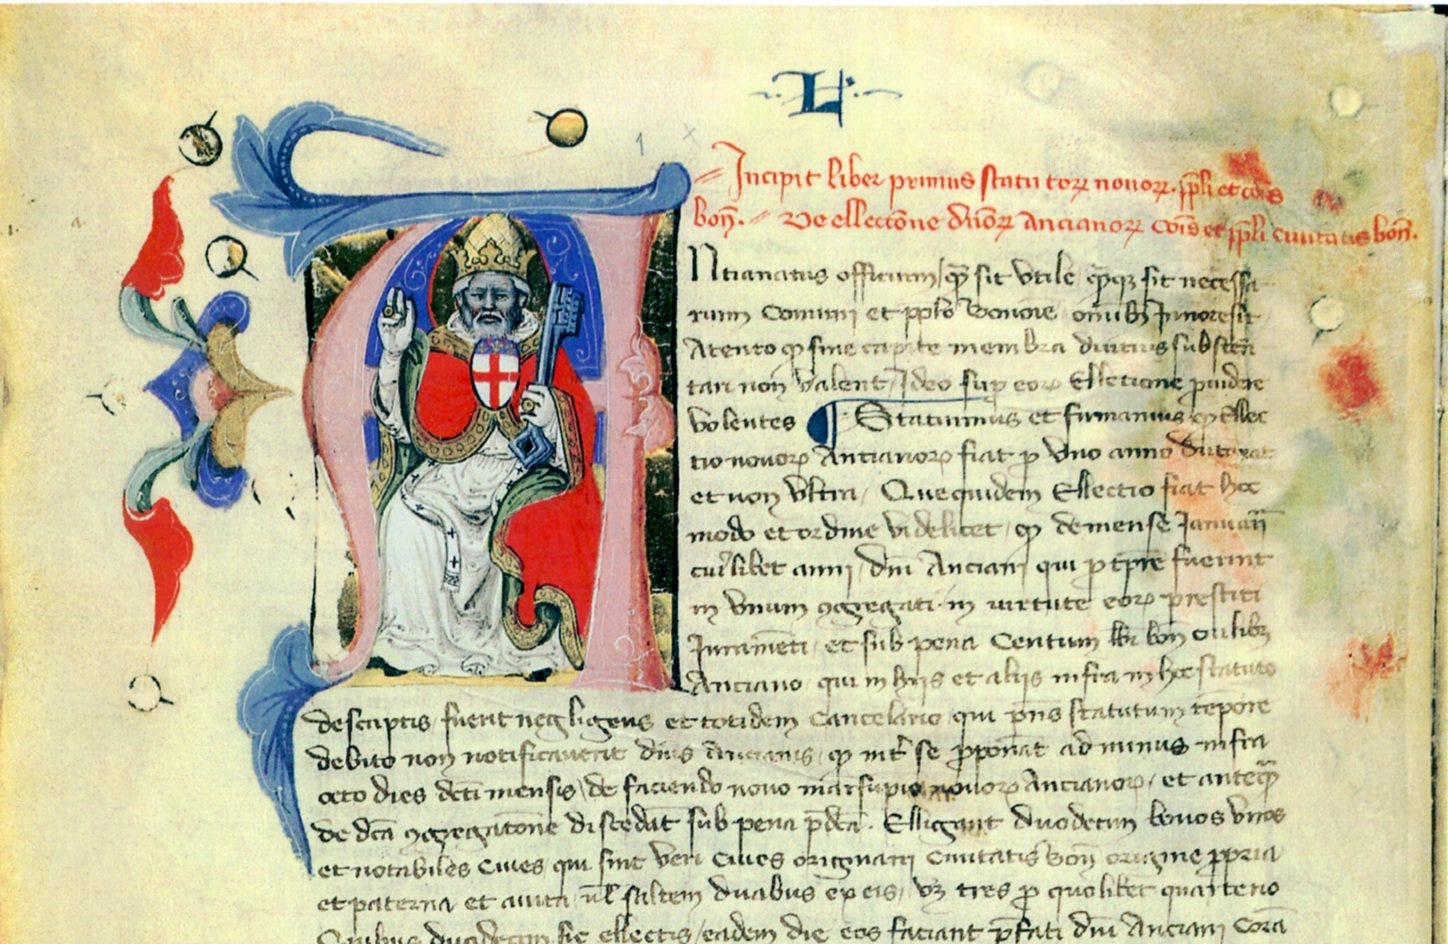 L
1 x
Incipit liber primus statutoꝝ novoꝝ. ppli et cõis
boñ. De ellectiõne dñoꝝ Ancianoꝝ Cõis et ppli civitatis boñ.
Ancianatus officium qͥ sit utile qͥqꝫ sit necessa
rium Comuni et pplo bononie omibꝫ Innotescit
Atento qͥ sine capite membra diutius substen
tari non valent, Ideo sup eoꝝ Elletione providere
volentes ¶ Statuimus et firmamus qͥ Ellec
tio novoꝝ Ancianoꝝ fiat p uno anno dutaxat
et non ultra, Que quidem Ellectio fiat hoc
modo et ordine videlicet, qͥ de mense Januarii
cuiuslibet anni, dñi Anciani qui p tpre fuerint
in unum ꝯgregati in virtute eoꝝ prestiti
Juramẽti, et sub pena Centum lib boñ cuilibꝫ
Anciano, qui in hiis et aliis infra in hoc statuto
descriptis fuerit negligens et totidem Cancelario, qui pñs statutum tẽpore
debito non notificaverit dñis Ancianis, qͥ int se pponat ad minus infra
octo dies dicti mensis, de faciendo novo marsupio novoꝝ Ancianoꝝ, et anteqͣ
de dca ꝯgregatõne discedãt sub pena pdca. Elligant duodecim bonos viros
et notabiles Cives qui sint veri cives originarii Civitatis boñ origine ppria
et paterna et avita, ul saltem duabus ex eis, vꝫ tres p quolibet quarterio
Quibus duodecim sic ellectis, eadem die eos faciant pfati dñi Anciani Corã